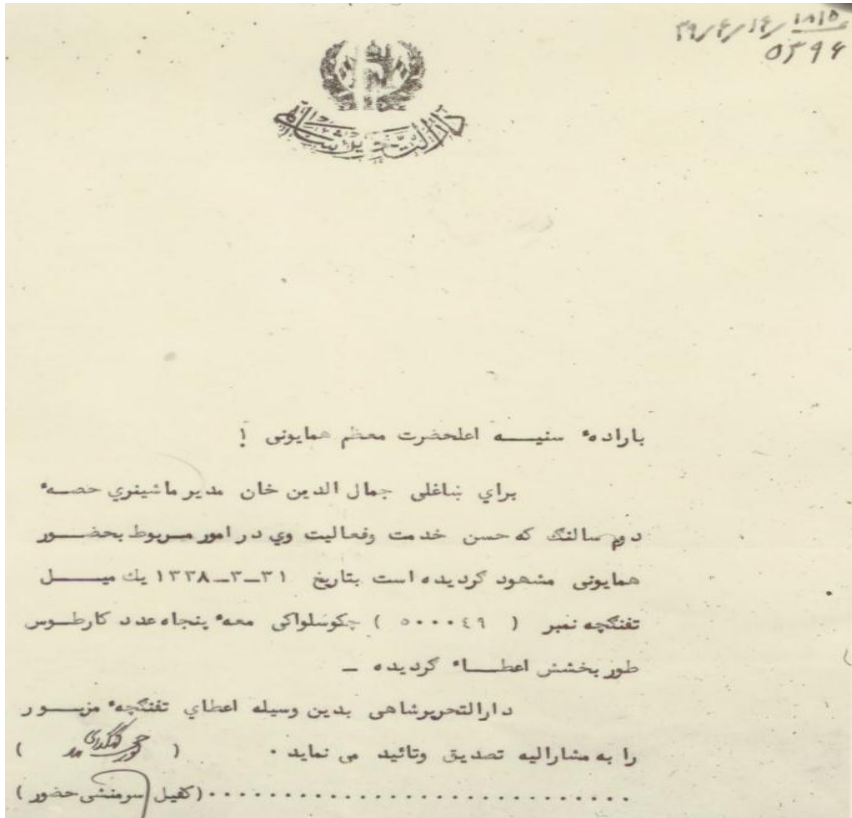 ۳۹/۴/۱۴/ ۱۸۱۵
دارالتحریر شاهی
باراده ٔ سنیـــه اعلحضرت معظم همایونی !
برای ښاغلی جمال الدین خان مدیر ماشینري حصــه ٔ
دوم سالنگ که حسن خدمت وفعالیت وي در امور مربوط بحضــور
همایونی مشهود کردیده است بتاریخ ۳۱-۳-۱۳۳۸ يك میــل
تفنگچه نمبر ( ۵۰۰۰٤۹ ) چکوسلواکی معه ٔ پنجاه عدد کارطــوس
طور بخشش اعطــاء کردیده -
دارالتحریرشاهی بدین وسیله اعطاي تفنگچه ٔ مزبــور
را به مشارالیه تصدیق وتائید می نماید . ( )
..............................(کفیل سرمنشی حضور )